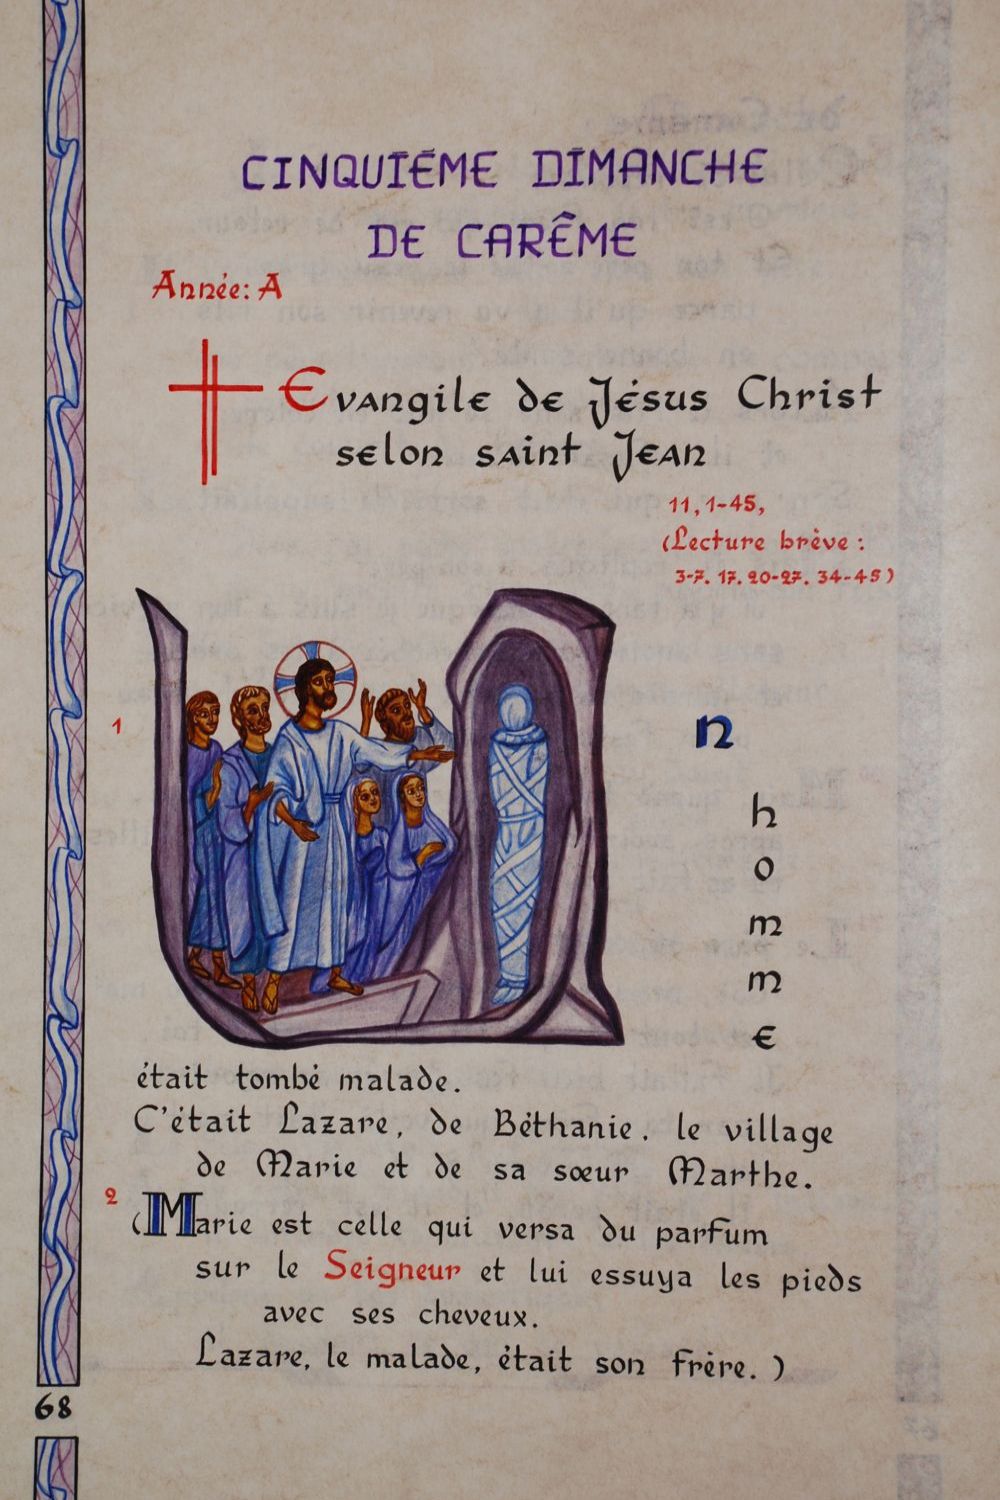 CINQUIÉME DIMANCHE
DE CARÊME
Année: A
Evangile de Jésus Christ
selon saint Jean
11, 1-45,
(Lecture brève :
3-7. 17. 20-27. 34-45)
1 Un
h
o
m
m
e
était tombé malade.
C'était Lazare, de Béthanie, le village
de Marie et de sa sœur Marthe.
2 (Marie est celle qui versa du parfum
sur le Seigneur et lui essuya les pieds
avec ses cheveux.
Lazare, le malade, était son frère.)
68